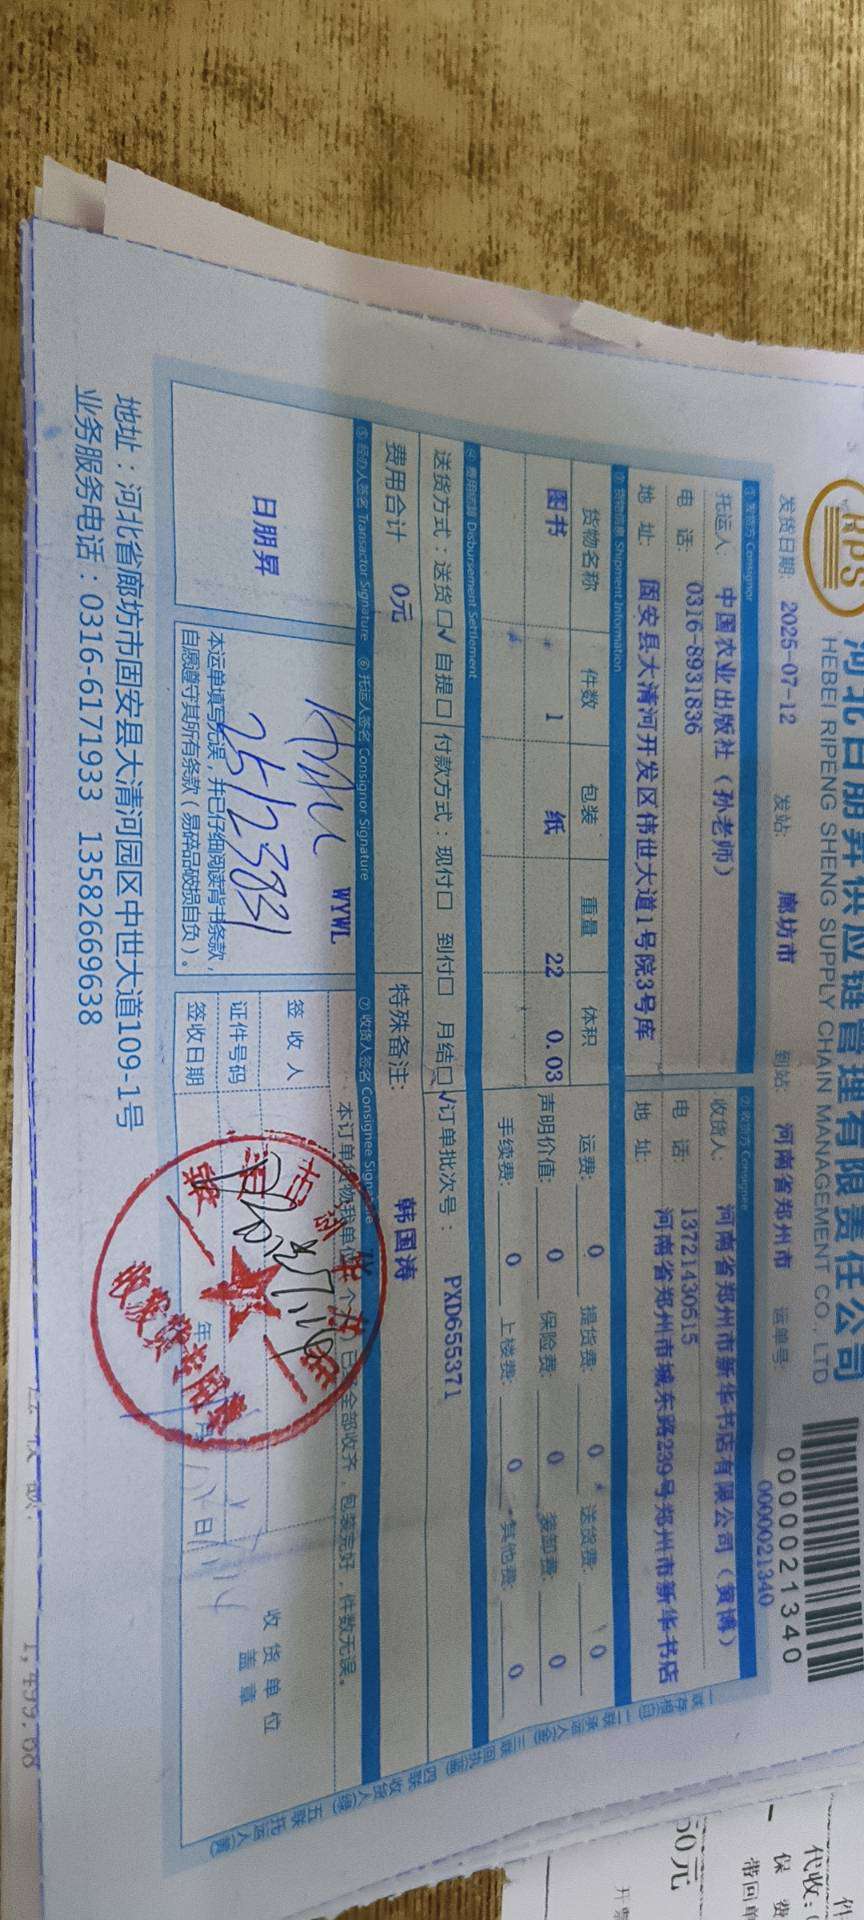 河北日朋昇供应链管理有限责任公司
HEBEI RIPENG SHENG SUPPLY CHAIN MANAGEMENT CO., LTD
0000021340
发货日期: 2025-07-12 发站: 廊坊市 到站: 河南省郑州市 运单号: 0000021340
①发货方 Consignor ②收货方 Consignee
托运人: 中国农业出版社（孙老师） 收货人: 河南省郑州市新华书店有限公司（黄博）
电 话: 0316-8931836 电 话: 13721430515
地 址: 固安县大清河开发区伟世大道1号院3号库 地 址: 河南省郑州市城东路239号郑州市新华书店
③ 货物信息 Shipment Information
货物名称 件数 包装 重量 体积 运费: 0 提货费: 0 送货费: 0
图书 1 纸 22 0.03 声明价值: 0 保险费: 0 装卸费: 0
手续费: 0 上楼费: 0 其他费: 0
④ 费用结算 Disbursement Settlement
送货方式：送货口√ 自提口 付款方式：现付口 到付口 月结口√ 订单批次号： PXD655371
费用合计 0元 特殊备注: 韩国涛
⑤ 经办人签名 Transactor Signature ⑥ 托运人签名 Consignor Signature ⑦ 收货人签名 Consignee Signature
日朋昇
WYWL
2512383
本运单填写无误，并已仔细阅读背书条款，
自愿遵守其所有条款（易碎品破损自负）。
本订单货物我单位 个 已全部收齐，包装完好，件数无误。
签 收 人
证件号码
签收日期 年 月 日
收 货 单 位
盖 章
收发货专用章
地址：河北省廊坊市固安县大清河园区中世大道109-1号
业务服务电话：0316-6171933 13582669638
一联存根(白) 二联承运人(金) 三联回执(蓝) 四联收货人(绿) 五联托运人(黄)
1,499.68
50元
代收:
保 费
带回单
件